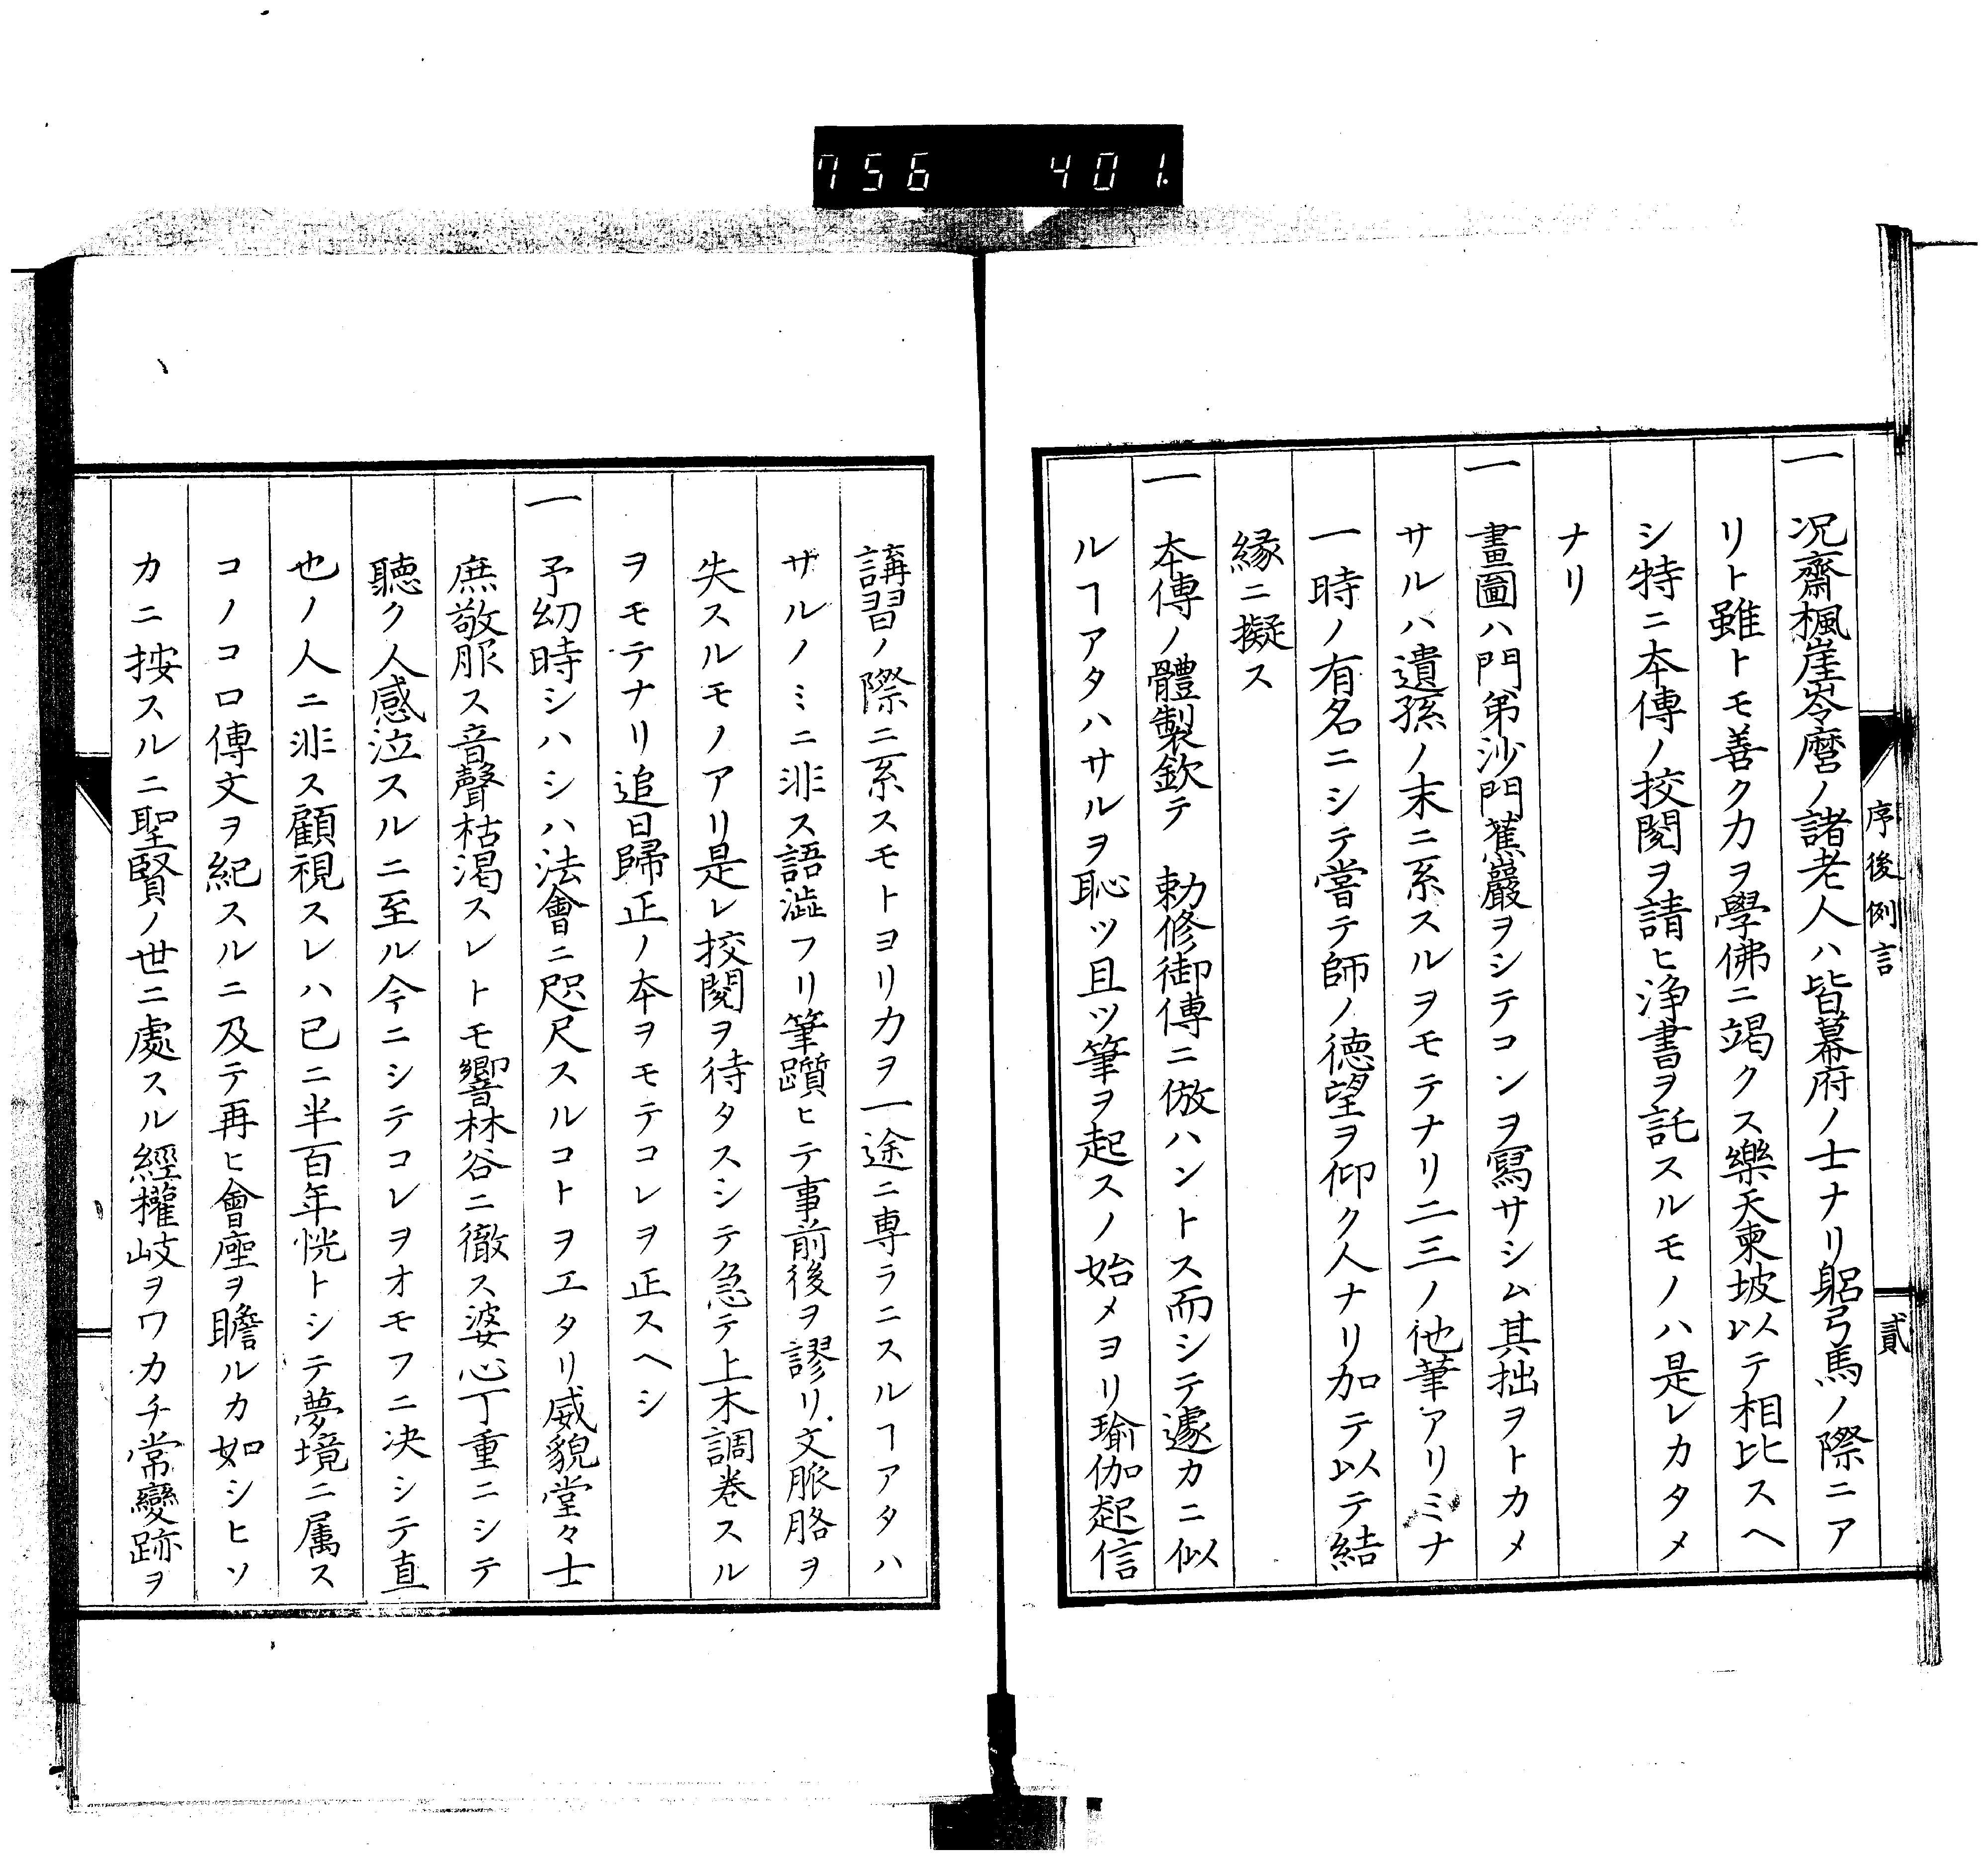 756 401.
序後例言
貳
一 况齋楓崖岺麿ノ諸老人ハ皆幕府ノ士ナリ躬弓馬ノ際ニア
リト雖トモ善ク力ヲ學佛ニ竭クス樂天東坡以テ相比スヘ
シ特ニ本傳ノ挍閲ヲ請ヒ浄書ヲ託スルモノハ是レカタメ
ナリ
一 畫圖ハ門弟沙門蕉巖ヲシテコンヲ寫サシム其拙ヲトカメ
サルハ遺孫ノ末ニ系スルヲモテナリ二三ノ他筆アリミナ
一時ノ有名ニシテ嘗テ師ノ徳望ヲ仰ク人ナリ加テ以テ結
縁ニ擬ス
一 本傳ノ體製欽テ 勅修御傳ニ倣ハントス而シテ遽カニ似
ルヿアタハサルヲ恥ツ且ツ筆ヲ起スノ始メヨリ瑜伽起信
講習ノ際ニ系スモトヨリ力ヲ一途ニ専ラニスルヿアタハ
ザルノミニ非ス語澁フリ筆躓ヒテ事前後ヲ謬リ文脈胳ヲ
失スルモノアリ是レ挍閲ヲ待タスシテ急テ上木調巻スル
ヲモテナリ追日歸正ノ本ヲモテコレヲ正スヘシ
一 予幼時シハシハ法會ニ咫尺スルコトヲエタリ威貌堂々士
庶敬服ス音聲枯渇スレトモ響林谷ニ徹ス婆心丁重ニシテ
聽ク人感泣スルニ至ル今ニシテコレヲオモフニ决シテ直
也ノ人ニ非ス顧視スレハ已ニ半百年恍トシテ夢境ニ属ス
コノコロ傳文ヲ紀スルニ及テ再ヒ會座ヲ瞻ルカ如シヒソ
カニ按スルニ聖賢ノ世ニ處スル經權岐ヲワカチ常變跡ヲ